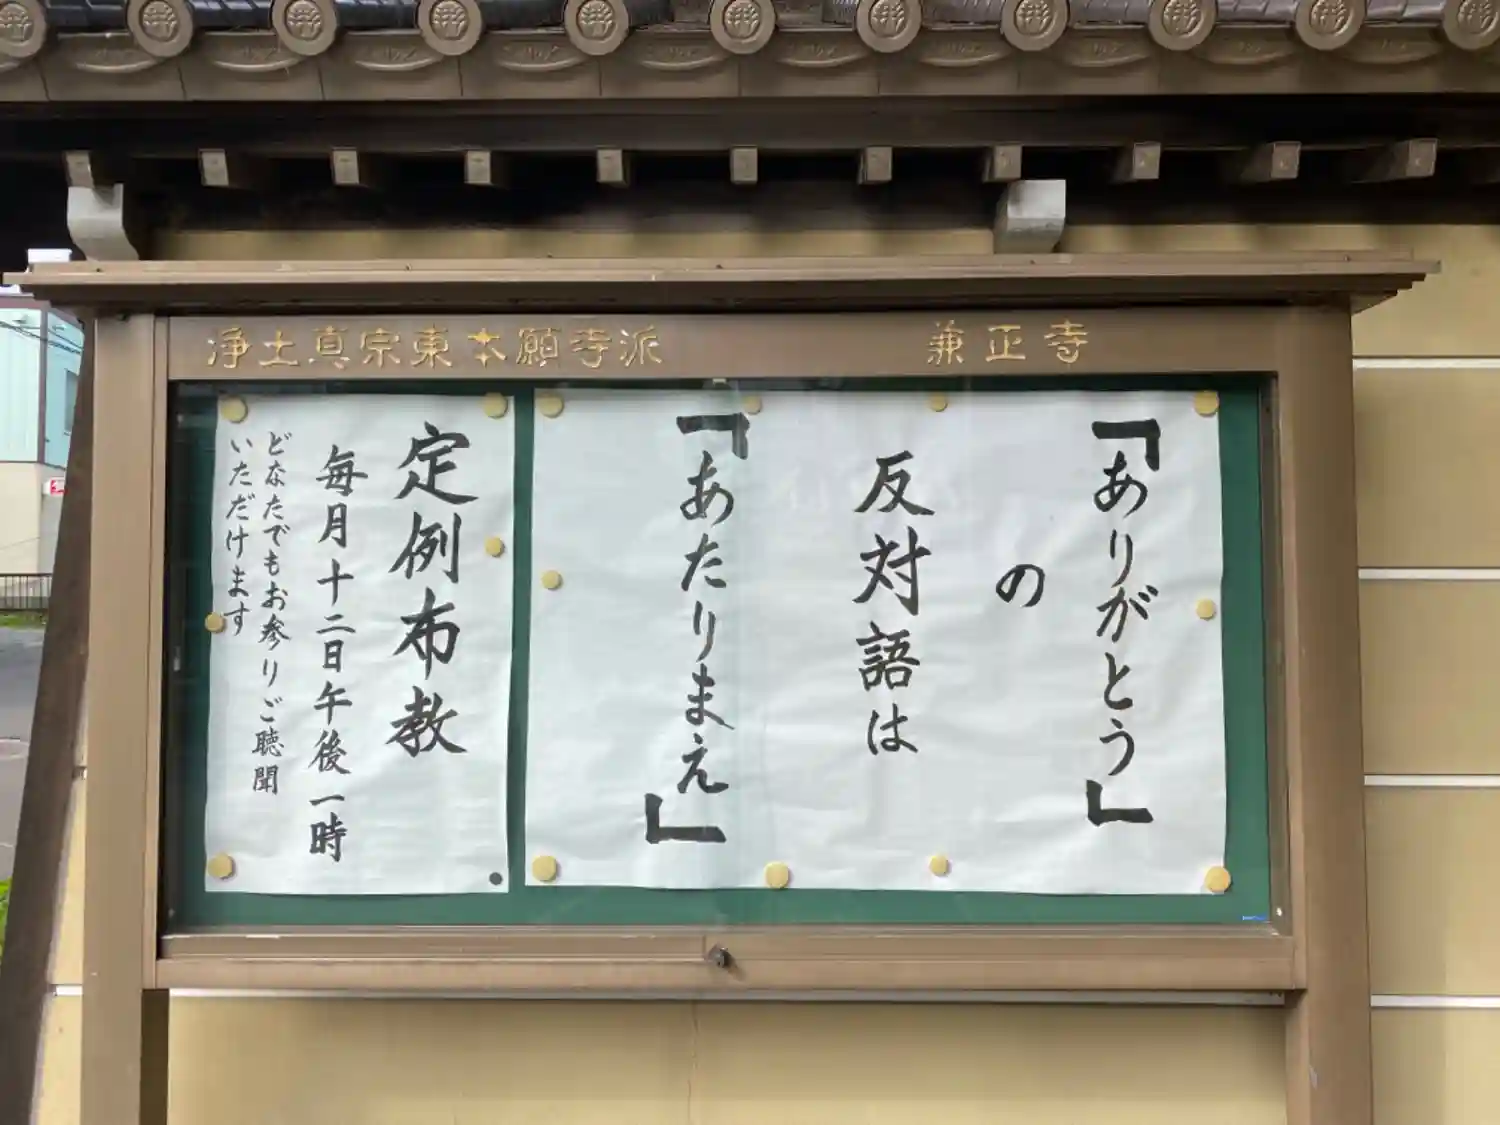 浄土真宗東本願寺派
兼正寺
「ありがとう」
の
反対語は
「あたりまえ」
定例布教
毎月十二日午後一時
どなたでもお参りご聴聞
いただけます